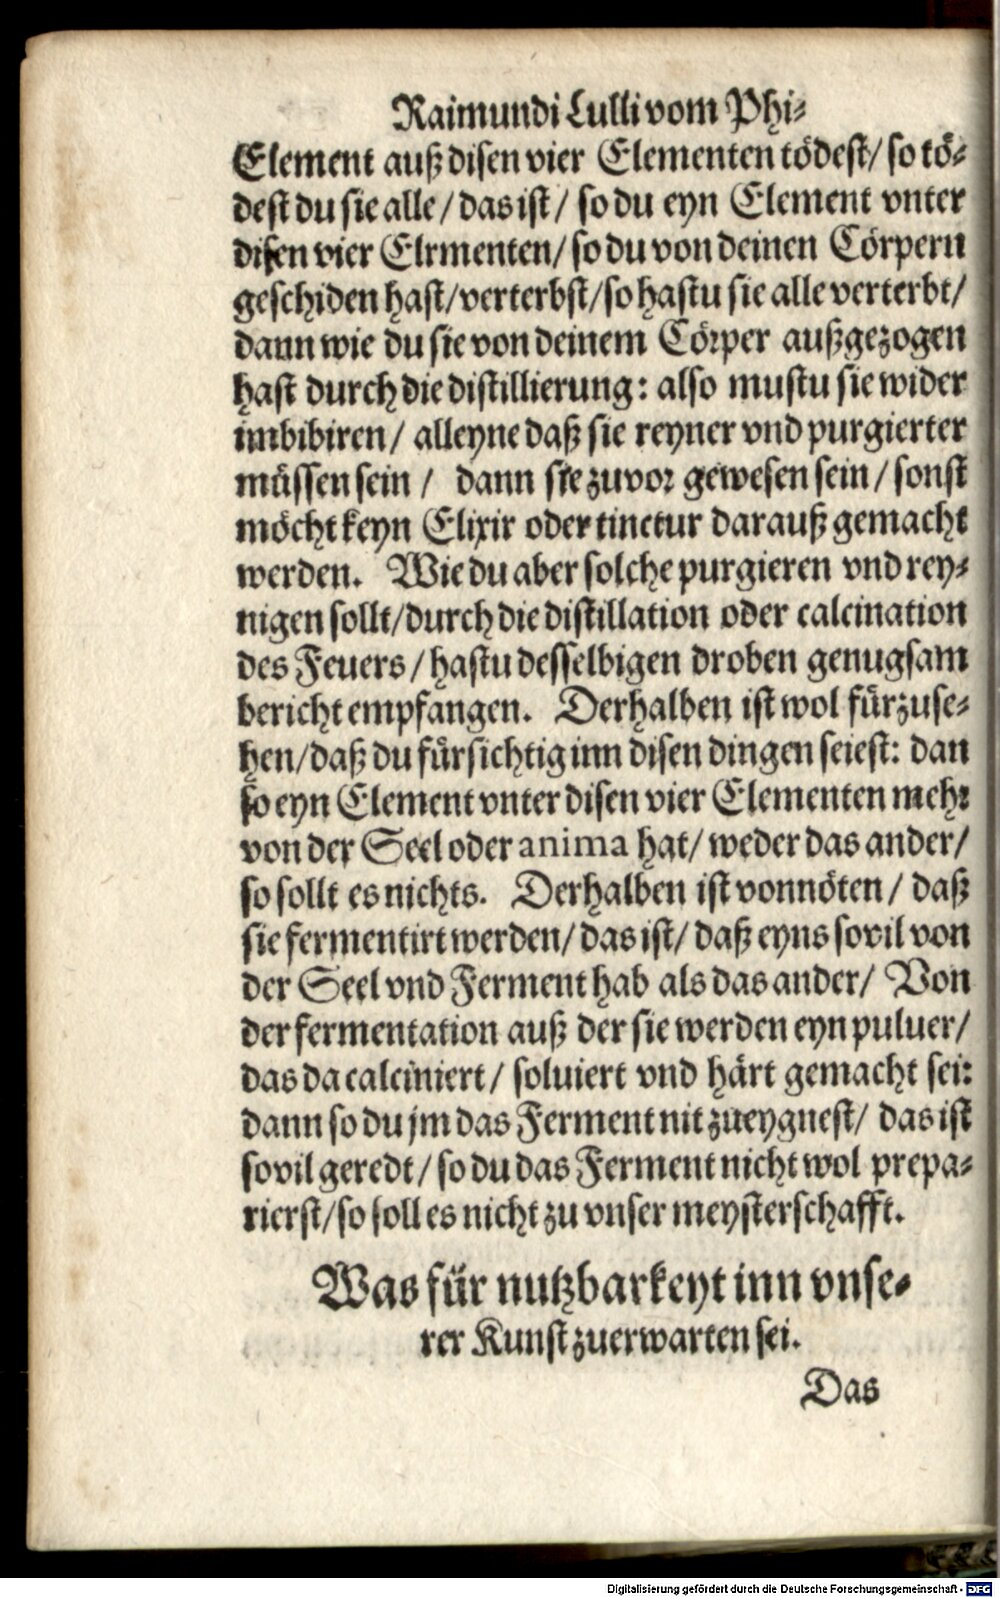 Raimundi Lulli vom Phi-
Element auß disen vier Elementen tödest/ so tö-
dest du sie alle/ das ist/ so du eyn Element vnter
disen vier Elrmenten/ so du von deinen Cörpern
geschiden hast/ verterbst/ so hastu sie alle verterbt/
dann wie du sie von deinem Cörper außgezogen
hast durch die distillierung: also mustu sie wider
imbibiren/ alleyne daß sie reyner vnd purgierter
müssen sein/ dann sie zuvor gewesen sein/ sonst
möcht keyn Elixir oder tinctur darauß gemacht
werden. Wie du aber solche purgieren vnd rey-
nigen sollt/ durch die distillation oder calcination
des Feuers/ hastu desselbigen droben genugsam
bericht empfangen. Derhalben ist wol fürzuse-
hen/ daß du fürsichtig inn disen dingen seiest: dan
so eyn Element vnter disen vier Elementen mehr
von der Seel oder anima hat/ weder das ander/
so sollt es nichts. Derhalben ist vonnöten/ daß
sie fermentirt werden/ das ist/ daß eyns sovil von
der Seel vnd Ferment hab als das ander/ Von
der fermentation auß der sie werden eyn puluer/
das da calciniert/ soluiert vnd härt gemacht sei:
dann so du jm das Ferment nit zueygnest/ das ist
sovil geredt/ so du das Ferment nicht wol prepa-
rierst/ so soll es nicht zu vnser meysterschafft.
Was für nutzbarkeyt inn vnse-
rer Kunst zuerwarten sei.
Das
Digitalisierung gefördert durch die Deutsche Forschungsgemeinschaft - DFG